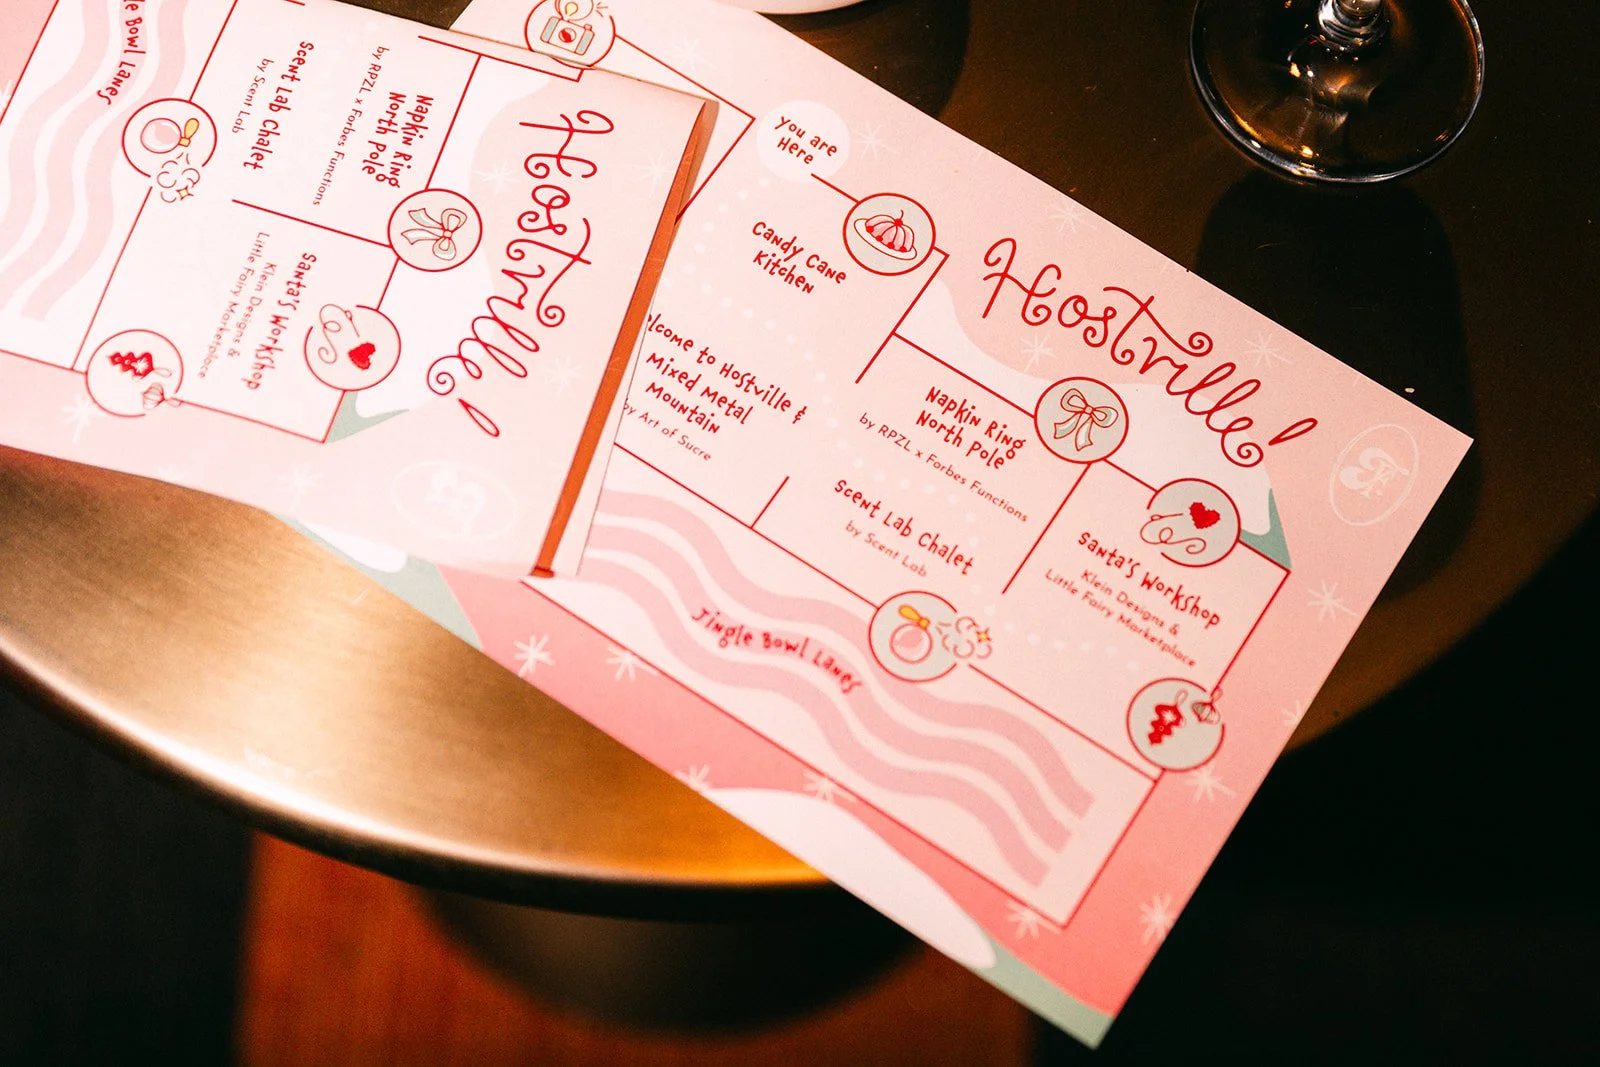 Jingle Bowl Lanes
Scent Lab Chalet
by Scent Lab
Napkin Ring
North Pole
by RPZL x Forbes Functions
Santa's Workshop
Klein Designs &
Little Fairy Marketplace
Hostville!
You are
Here
Candy Cane
Kitchen
lcome to Hostville &
Mixed Metal
Mountain
by Art of Sucre
Hostville!
Napkin Ring
North Pole
by RPZL x Forbes Functions
Scent Lab Chalet
by Scent Lab
Santa's Workshop
Klein Designs &
Little Fairy Marketplace
Jingle Bowl Lanes